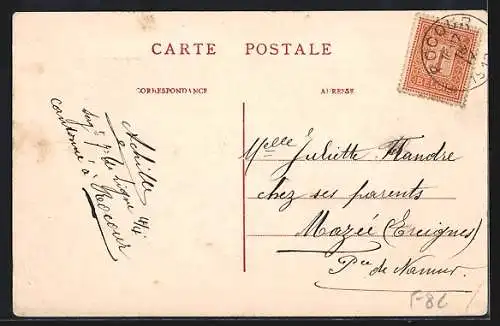 CARTE POSTALE
CORRESPONDANCE
ADRESSE
ROCOUR
Achille
de ligne
cantonné à Rocour
Melle Juliette Flandre
chez ses parents
Mazée (Ereignes)
Pce de Namur.
F-86